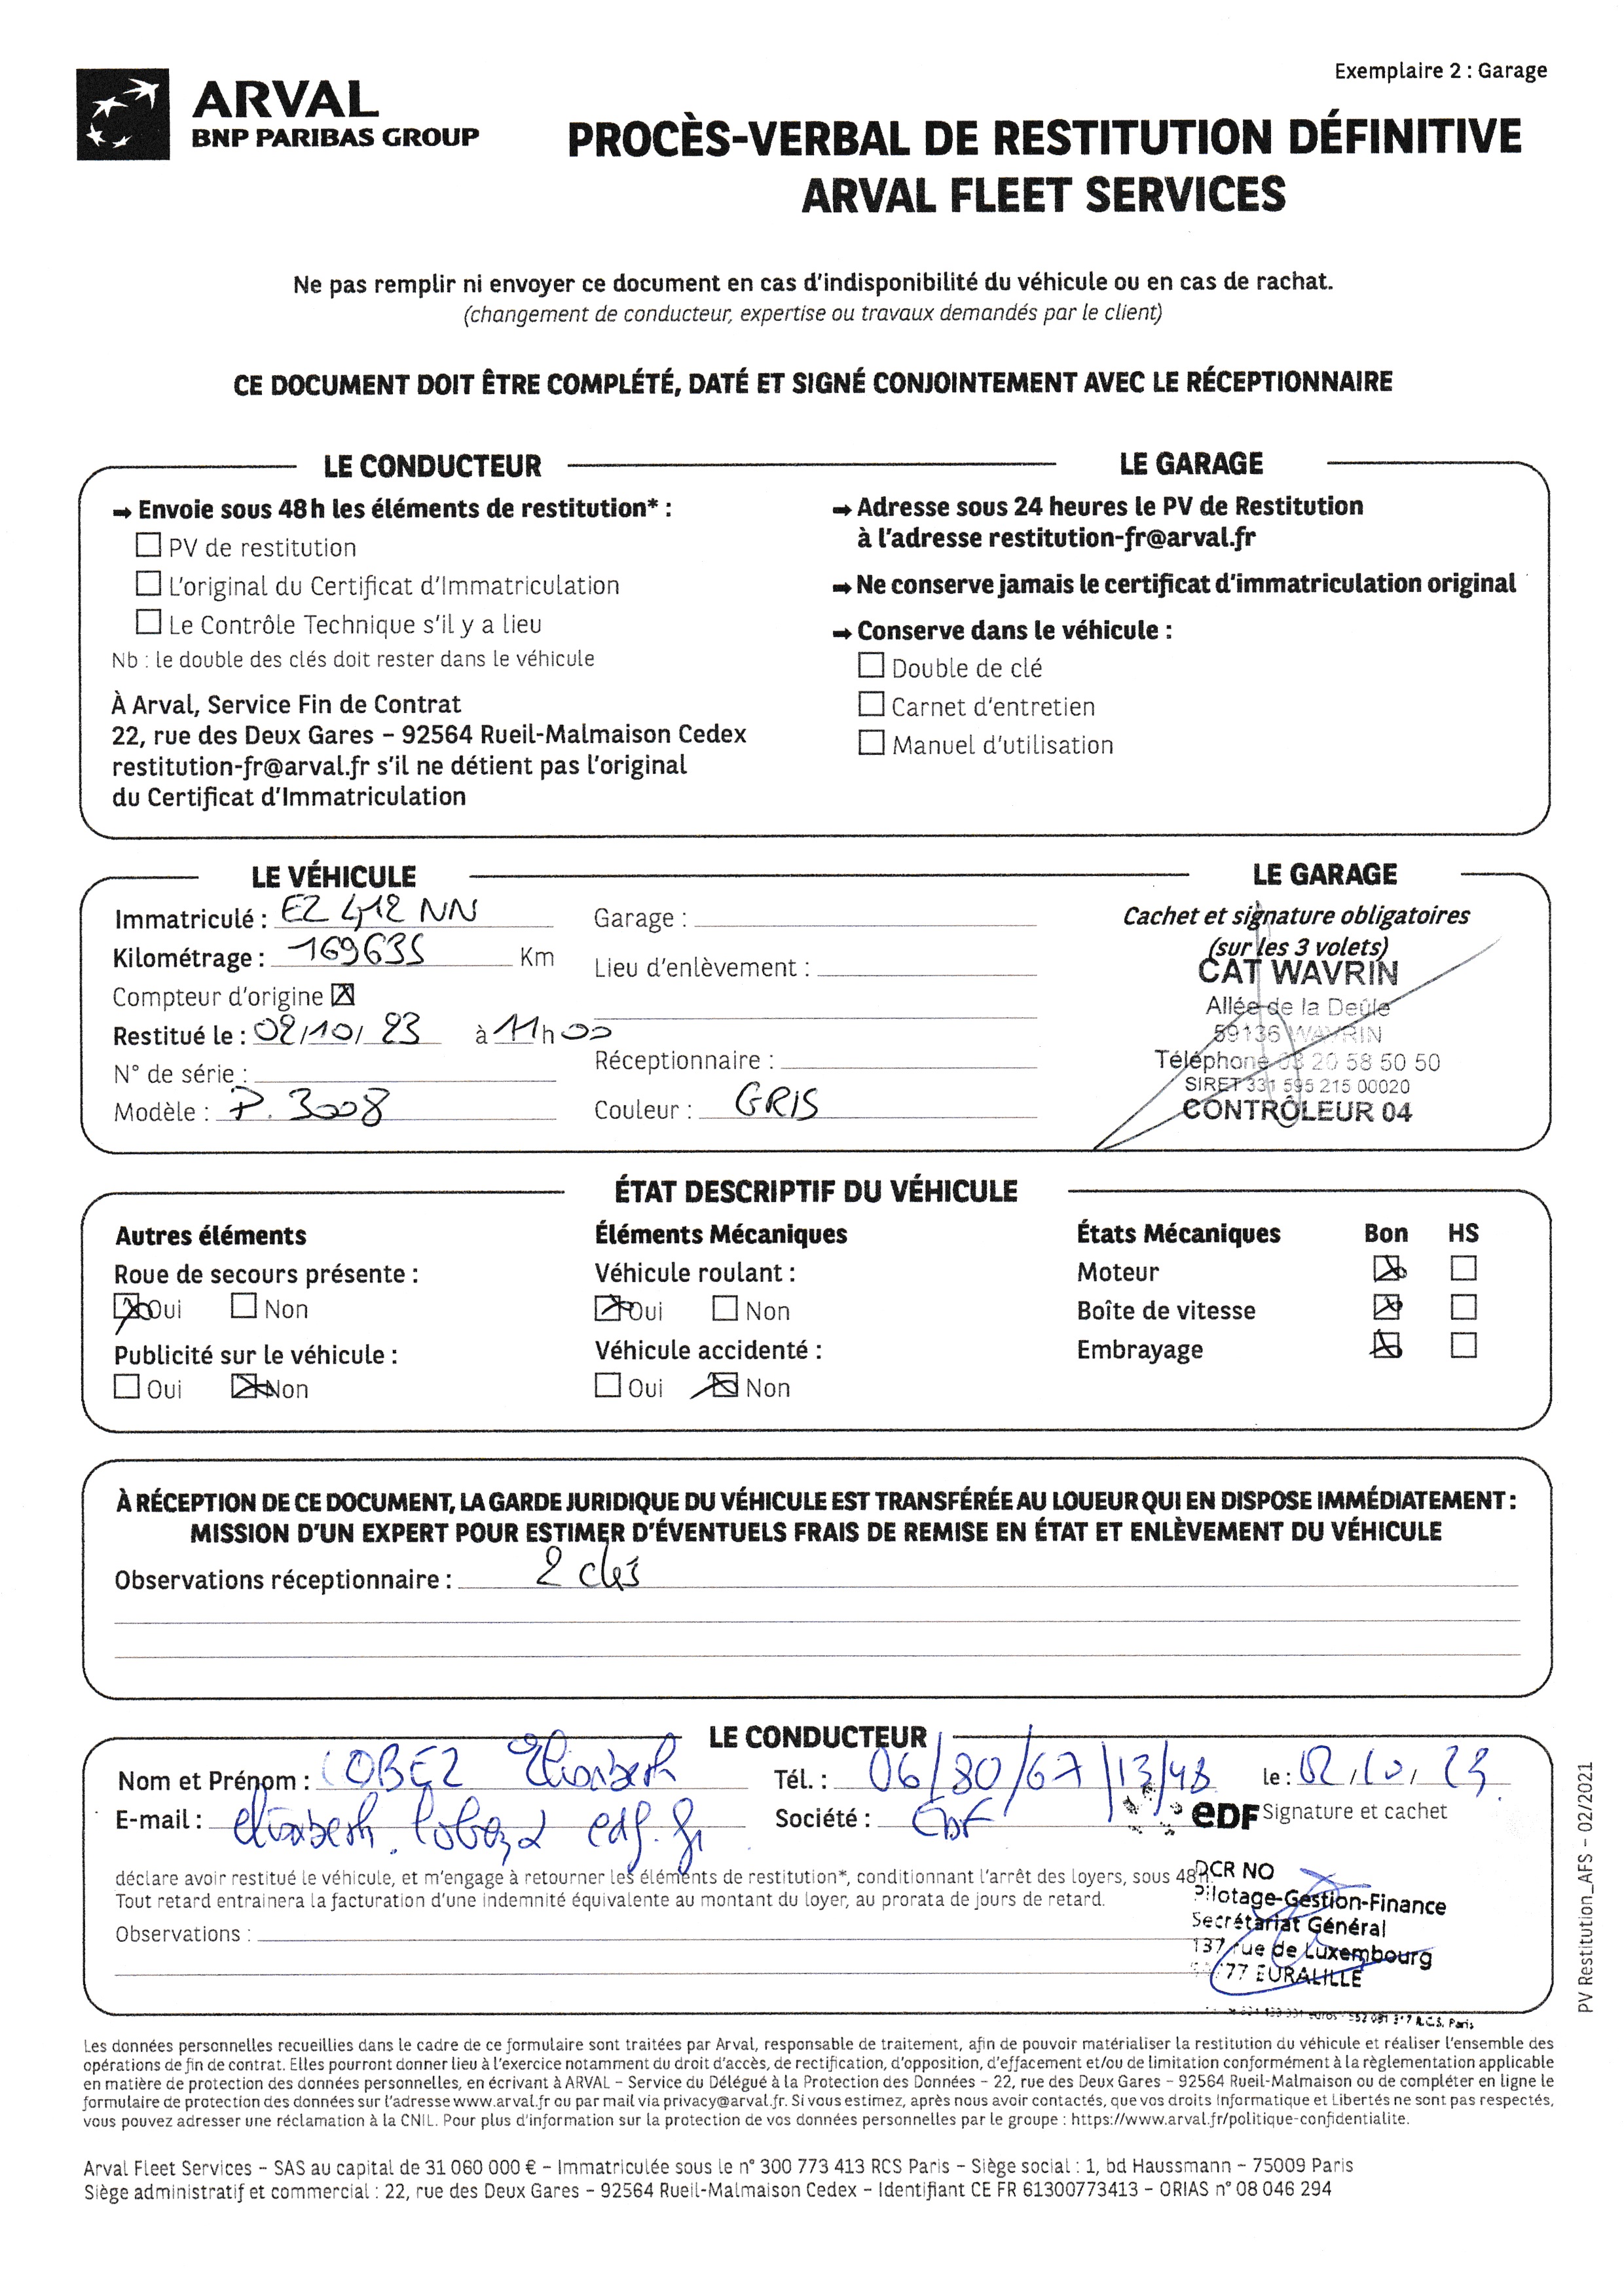 Exemplaire 2 : Garage
ARVAL
BNP PARIBAS GROUP
PROCÈS-VERBAL DE RESTITUTION DÉFINITIVE
ARVAL FLEET SERVICES
Ne pas remplir ni envoyer ce document en cas d'indisponibilité du véhicule ou en cas de rachat.
(changement de conducteur, expertise ou travaux demandés par le client)
CE DOCUMENT DOIT ÊTRE COMPLÉTÉ, DATÉ ET SIGNÉ CONJOINTEMENT AVEC LE RÉCEPTIONNAIRE
LE CONDUCTEUR
→ Envoie sous 48h les éléments de restitution* :
PV de restitution
L'original du Certificat d'Immatriculation
Le Contrôle Technique s'il y a lieu
Nb : le double des clés doit rester dans le véhicule
À Arval, Service Fin de Contrat
22, rue des Deux Gares – 92564 Rueil-Malmaison Cedex
restitution-fr@arval.fr s'il ne détient pas l'original
du Certificat d'Immatriculation
LE GARAGE
→ Adresse sous 24 heures le PV de Restitution
à l'adresse restitution-fr@arval.fr
→ Ne conserve jamais le certificat d'immatriculation original
→ Conserve dans le véhicule :
Double de clé
Carnet d'entretien
Manuel d'utilisation
LE VÉHICULE
Immatriculé : EZ 412 NN
Kilométrage : 169635 Km
Compteur d'origine
Restitué le : 02/10/ 23 à 11h00
N° de série :
Modèle : P. 3008
Garage :
Lieu d'enlèvement :
Réceptionnaire :
Couleur : GRIS
LE GARAGE
Cachet et signature obligatoires
(sur les 3 volets)
CAT WAVRIN
Allée de la Deûle
59136 WAVRIN
Téléphone 03 20 58 50 50
SIRET 331 595 215 00020
CONTRÔLEUR 04
ÉTAT DESCRIPTIF DU VÉHICULE
Autres éléments
Roue de secours présente :
Oui Non
Publicité sur le véhicule :
Oui Non
Éléments Mécaniques
Véhicule roulant :
Oui Non
Véhicule accidenté :
Oui Non
États Mécaniques Bon HS
Moteur
Boîte de vitesse
Embrayage
À RÉCEPTION DE CE DOCUMENT, LA GARDE JURIDIQUE DU VÉHICULE EST TRANSFÉRÉE AU LOUEUR QUI EN DISPOSE IMMÉDIATEMENT :
MISSION D'UN EXPERT POUR ESTIMER D'ÉVENTUELS FRAIS DE REMISE EN ÉTAT ET ENLÈVEMENT DU VÉHICULE
Observations réceptionnaire : 2 clés
LE CONDUCTEUR
Nom et Prénom : LOBEZ Elisabeth
Tél. : 06/80/67/13/48
le : 02/10/ 23
E-mail : elisabeth.lobez@edf.fr
Société : EDF
eDF
Signature et cachet
déclare avoir restitué le véhicule, et m'engage à retourner les éléments de restitution*, conditionnant l'arrêt des loyers, sous 48h.
Tout retard entrainera la facturation d'une indemnité équivalente au montant du loyer, au prorata de jours de retard.
Observations :
DCR NO
Pilotage-Gestion-Finance
Secrétariat Général
137 rue de Luxembourg
777 EURALILLE
R.C.S. Paris
PV Restitution_AFS – 02/2021
Les données personnelles recueillies dans le cadre de ce formulaire sont traitées par Arval, responsable de traitement, afin de pouvoir matérialiser la restitution du véhicule et réaliser l'ensemble des
opérations de fin de contrat. Elles pourront donner lieu à l'exercice notamment du droit d'accès, de rectification, d'opposition, d'effacement et/ou de limitation conformément à la règlementation applicable
en matière de protection des données personnelles, en écrivant à ARVAL – Service du Délégué à la Protection des Données – 22, rue des Deux Gares – 92564 Rueil-Malmaison ou de compléter en ligne le
formulaire de protection des données sur l'adresse www.arval.fr ou par mail via privacy@arval.fr. Si vous estimez, après nous avoir contactés, que vos droits Informatique et Libertés ne sont pas respectés,
vous pouvez adresser une réclamation à la CNIL. Pour plus d'information sur la protection de vos données personnelles par le groupe : https://www.arval.fr/politique-confidentialite.
Arval Fleet Services – SAS au capital de 31 060 000 € – Immatriculée sous le n° 300 773 413 RCS Paris – Siège social : 1, bd Haussmann – 75009 Paris
Siège administratif et commercial : 22, rue des Deux Gares – 92564 Rueil-Malmaison Cedex – Identifiant CE FR 61300773413 – ORIAS n° 08 046 294